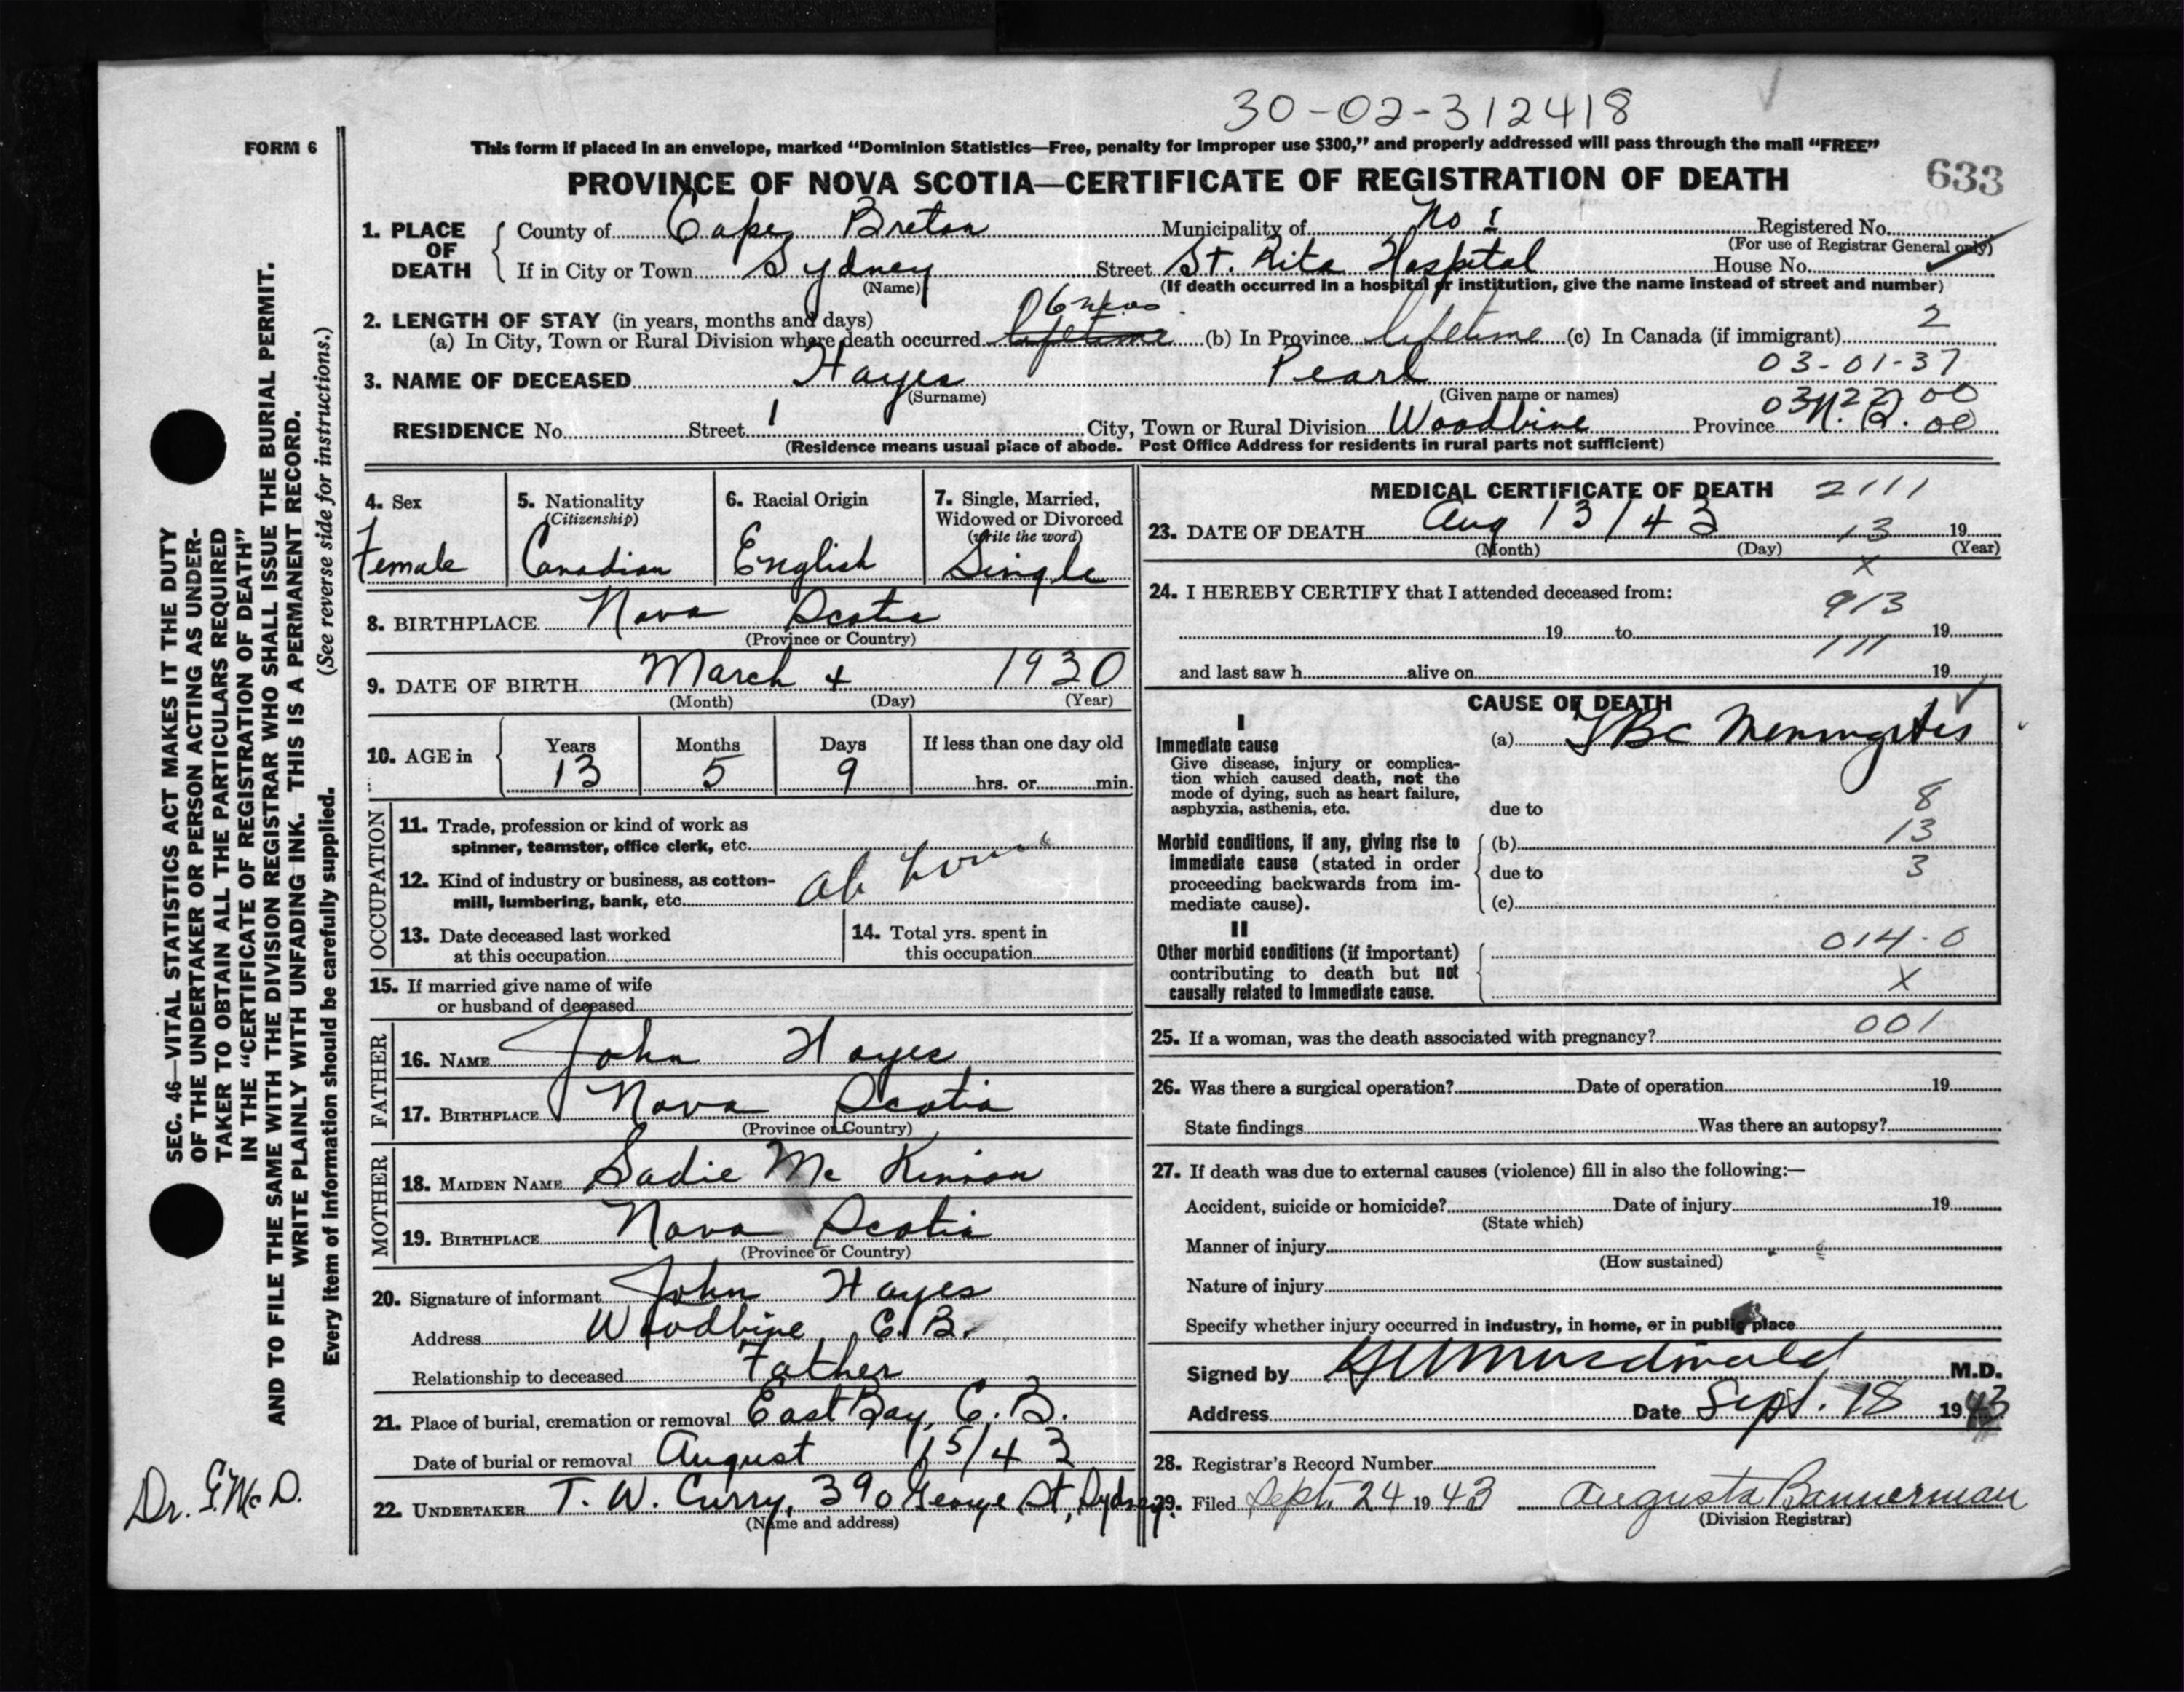 30-02-312418
FORM 6
This form if placed in an envelope, marked “Dominion Statistics—Free, penalty for improper use $300,” and properly addressed will pass through the mail “FREE”
PROVINCE OF NOVA SCOTIA—CERTIFICATE OF REGISTRATION OF DEATH
633
1. PLACE OF DEATH
County of Cape Breton Municipality of No 1 Registered No.
(For use of Registrar General only)
If in City or Town Sydney Street St. Rita Hospital House No.
(Name) (If death occurred in a hospital or institution, give the name instead of street and number)
2. LENGTH OF STAY (in years, months and days)
(a) In City, Town or Rural Division where death occurred lifetime (b) In Province lifetime (c) In Canada (if immigrant) 2
03-01-37
3. NAME OF DECEASED Hayes Pearl
(Surname) (Given name or names)
03 22 00
RESIDENCE No. Street 1 City, Town or Rural Division Woodbine Province 00
(Residence means usual place of abode. Post Office Address for residents in rural parts not sufficient)
4. Sex
Female
5. Nationality
(Citizenship)
Canadian
6. Racial Origin
English
7. Single, Married,
Widowed or Divorced
(write the word)
Single
8. BIRTHPLACE Nova Scotia
(Province or Country)
9. DATE OF BIRTH March 4 1930
(Month) (Day) (Year)
10. AGE in
Years 13
Months 5
Days 9
If less than one day old
hrs. or min.
OCCUPATION
11. Trade, profession or kind of work as
spinner, teamster, office clerk, etc.
12. Kind of industry or business, as cotton-
mill, lumbering, bank, etc. at home
13. Date deceased last worked
at this occupation
14. Total yrs. spent in
this occupation
15. If married give name of wife
or husband of deceased
FATHER
16. NAME John Hayes
17. BIRTHPLACE Nova Scotia
(Province or Country)
MOTHER
18. MAIDEN NAME Sadie Mc Kinnon
19. BIRTHPLACE Nova Scotia
(Province or Country)
20. Signature of informant John Hayes
Address Woodbine, C.B.
Relationship to deceased Father
21. Place of burial, cremation or removal East Bay, C.B.
Date of burial or removal August 15/43
22. UNDERTAKER T. W. Curry, 390 George St, Sydney.
(Name and address)
MEDICAL CERTIFICATE OF DEATH 2111
23. DATE OF DEATH Aug 13/43 13 19
(Month) (Day) (Year)
x
24. I HEREBY CERTIFY that I attended deceased from:
913
19 to 19
111
and last saw h alive on 19
CAUSE OF DEATH
I
Immediate cause
Give disease, injury or complica-
tion which caused death, not the
mode of dying, such as heart failure,
asphyxia, asthenia, etc.
(a) TBC Meningitis
due to 8
Morbid conditions, if any, giving rise to
immediate cause (stated in order
proceeding backwards from im-
mediate cause).
(b) 13
due to 3
(c)
II
Other morbid conditions (if important)
contributing to death but not
causally related to immediate cause.
014-0
X
25. If a woman, was the death associated with pregnancy? 001
26. Was there a surgical operation? Date of operation 19
State findings Was there an autopsy?
27. If death was due to external causes (violence) fill in also the following:—
Accident, suicide or homicide? Date of injury 19
(State which)
Manner of injury
(How sustained)
Nature of injury
Specify whether injury occurred in industry, in home, or in public place
Signed by M.D.
Address Date Sept. 18 1943
28. Registrar's Record Number
29. Filed Sept. 24 1943 Augusta Bannerman
(Division Registrar)
SEC. 46—VITAL STATISTICS ACT MAKES IT THE DUTY
OF THE UNDERTAKER OR PERSON ACTING AS UNDER-
TAKER TO OBTAIN ALL THE PARTICULARS REQUIRED
IN THE “CERTIFICATE OF REGISTRATION OF DEATH”
AND TO FILE THE SAME WITH THE DIVISION REGISTRAR WHO SHALL ISSUE THE BURIAL PERMIT.
WRITE PLAINLY WITH UNFADING INK. THIS IS A PERMANENT RECORD.
Every item of information should be carefully supplied. (See reverse side for instructions.)
Dr. G McD.